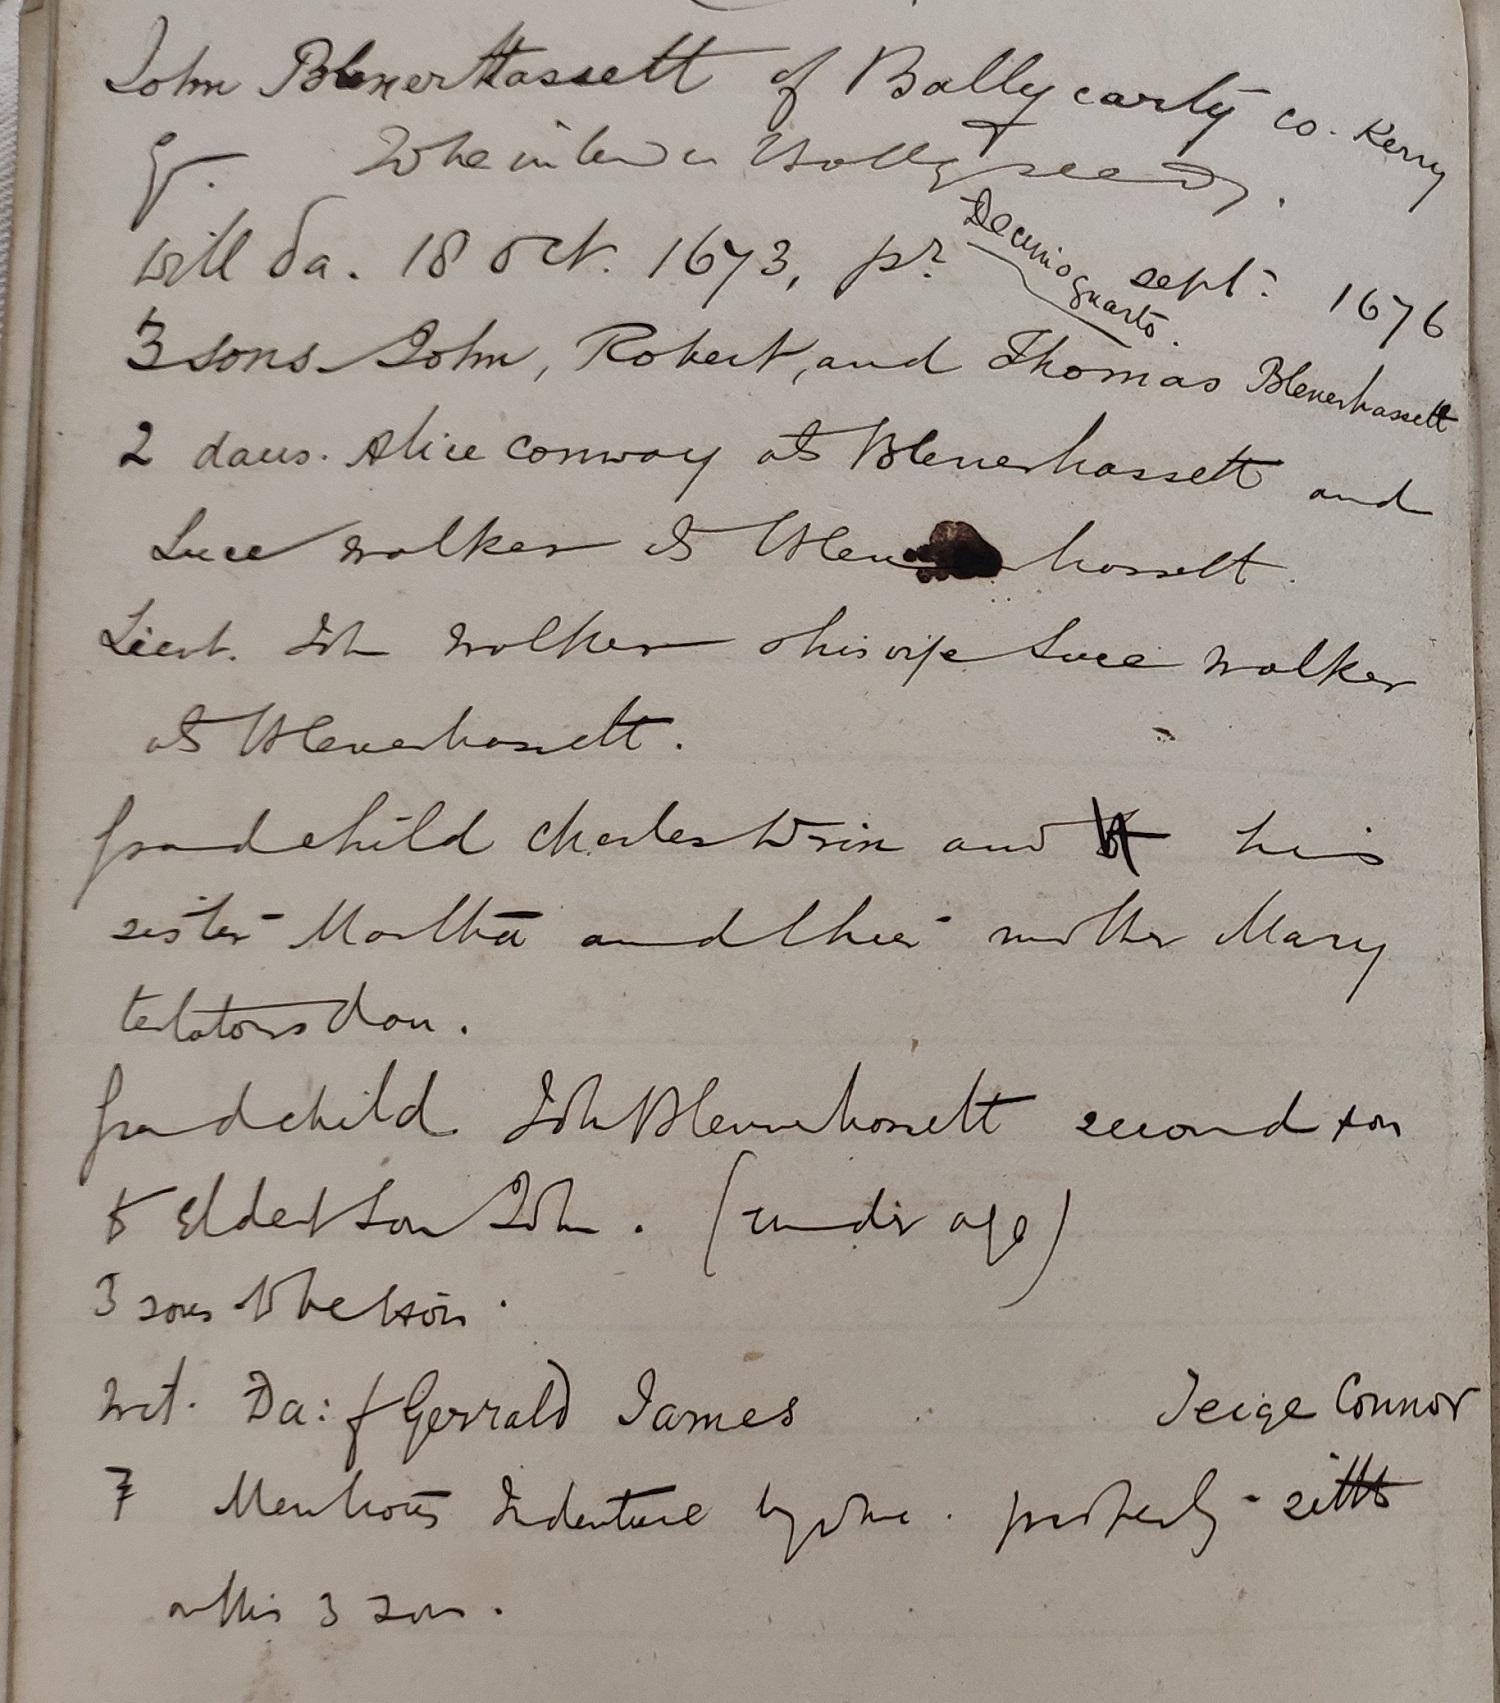 John BlenerHassett of Ballycarty co. Kerry
g. To be in in Ballyseedy.
will da. 18 Oct. 1673, pr. Decimo quarto. Sept. 1676
3 sons John, Robert, and Thomas Blenerhassett
2 daus. Alice Conway als Blenerhassett and
Luce Walker als Blen hassett.
Lieut. Joh Walker & his wife Luce Walker
als Blenerhassett.
Grandchild Charles and his
sister Martha and their mother Mary
testators dau.
Grandchild Joh Blennerhassett second son
to eldest son John. (under age)
3 sons to be
wit. Da: f Gerrald James Teige Connor
7 Mentions Indenture by property settd
on his 3 sons.